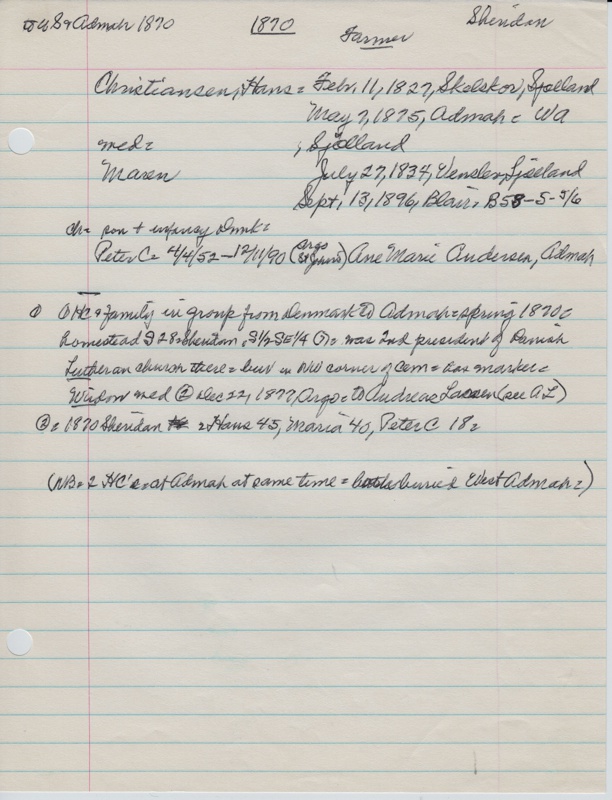 to US & Admah 1870 1870 Farmer Sheridan
Christiansen, Hans = Febr. 11, 1827, Skelskor, Sjolland
May 7, 1875, Admah = WA
med = , Sjolland
Maren July 27, 1834, Venslev, Sjolland
Sept. 13, 1896, Blair, B58-S-5/6
ch = son + infancy Dmk =
Peter C = 4/4/52 - 12/11/90 (Argo & Jowa) Ane Marie Andersen, Admah
① HC & Family in group from Denmark to Admah = spring 1870 =
homestead S 28 = Sheridan, S 1/2 SE 1/4 (?) = was 2nd president of Danish
Lutheran church there = bur in NW corner of cem = has marker =
Widow med @ Dec 22, 1877, Argo = to Andreas Lassen (see AL)
② = 1870 Sheridan = Hans 45, Maria 40, Peter C 18 =
(NB = 2 HC's = at Admah at same time = buried West Admah =)